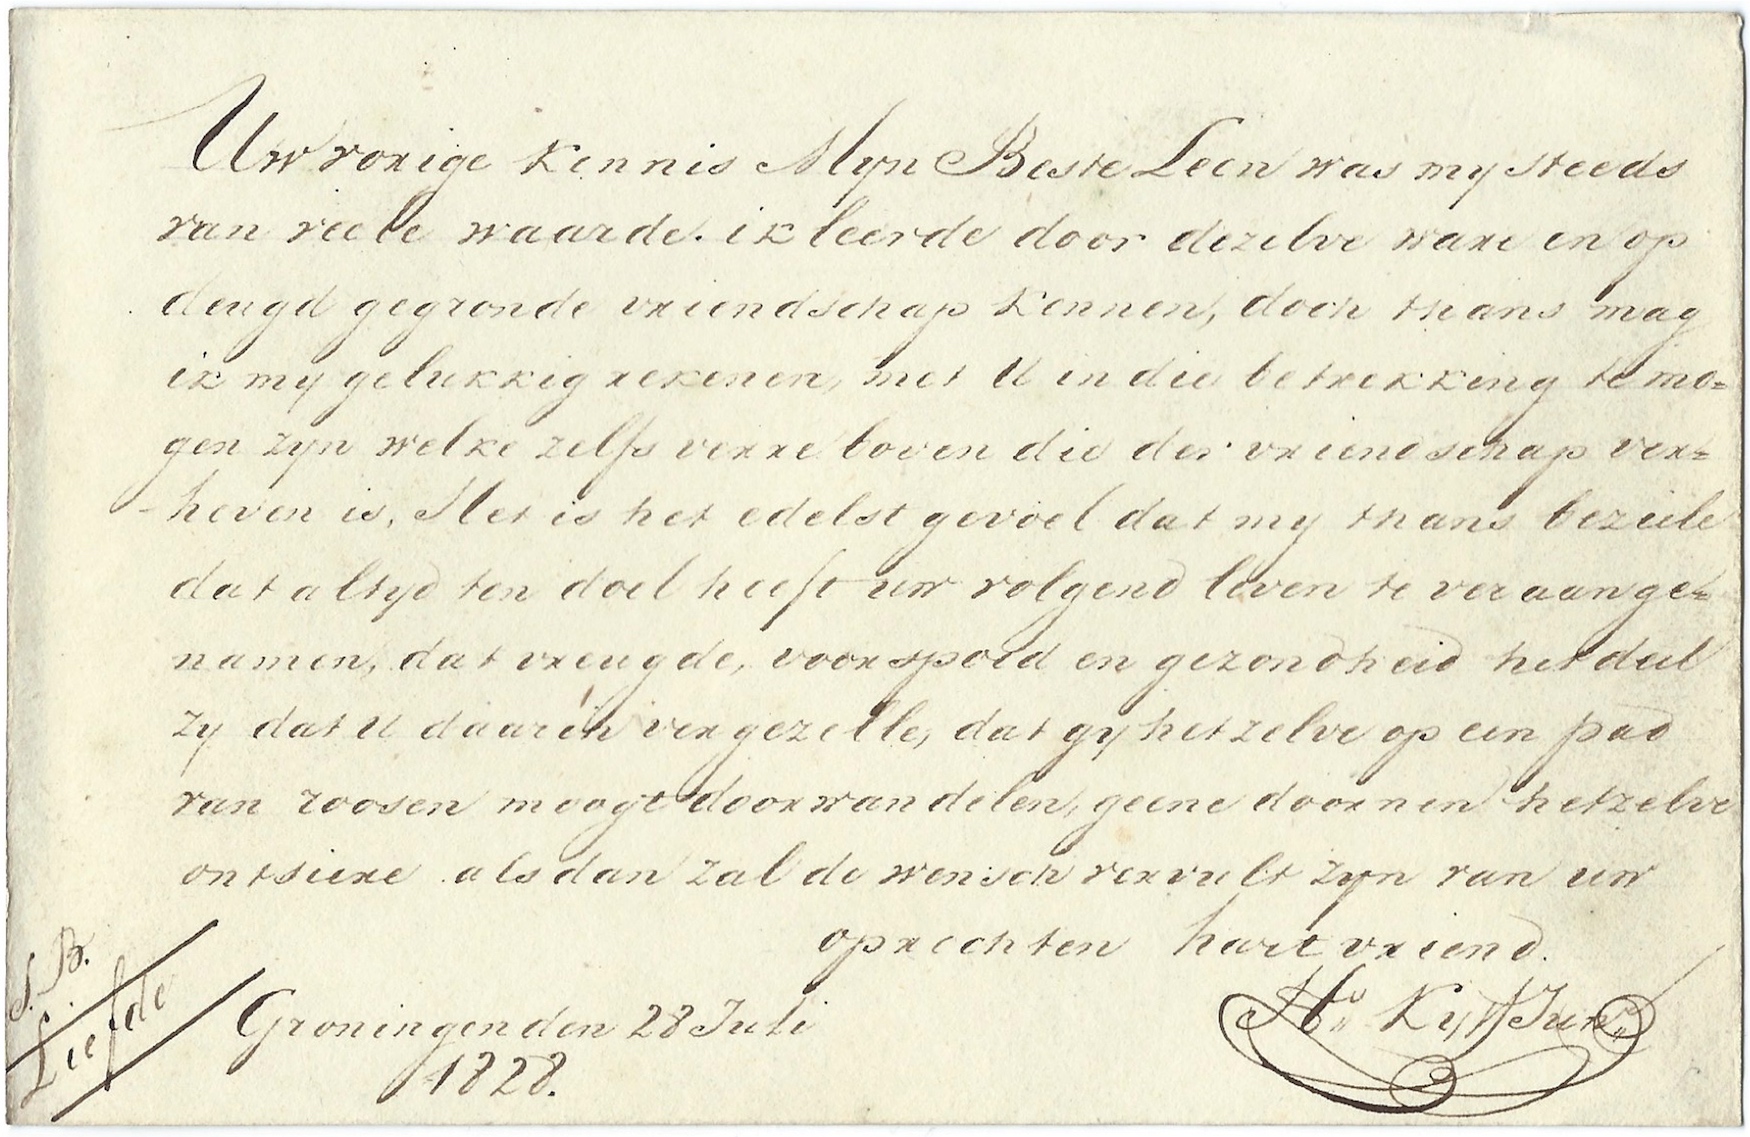 Uw vorige kennis Myn Beste Leen was my steeds
van veele waarde. ik leerde door dezelve ware en op
deugd gegronde vriendschap kennen, doch thans mag
ik my gelukkig rekenen, met U in die betrekking te mo=
gen zyn welke zelfs verre boven die der vriendschap ver=
-heven is, Het is het edelst gevoel dat my thans beziele
dat altyd ten doel heeft uw volgend leven te veraange=
namen, dat vreugde, voorspoed en gezondheid het deel
zy dat U daarin vergezelle, dat gy hetzelve op een pad
van roosen moogt doorwandelen, geene doornen hetzelve
ontsiere als dan zal de wensch vervult zyn van uw
oprechten hart vriend.
S. B.
Liefde
Groningen den 28 Juli
1828.
Ho. Kyff Junr.